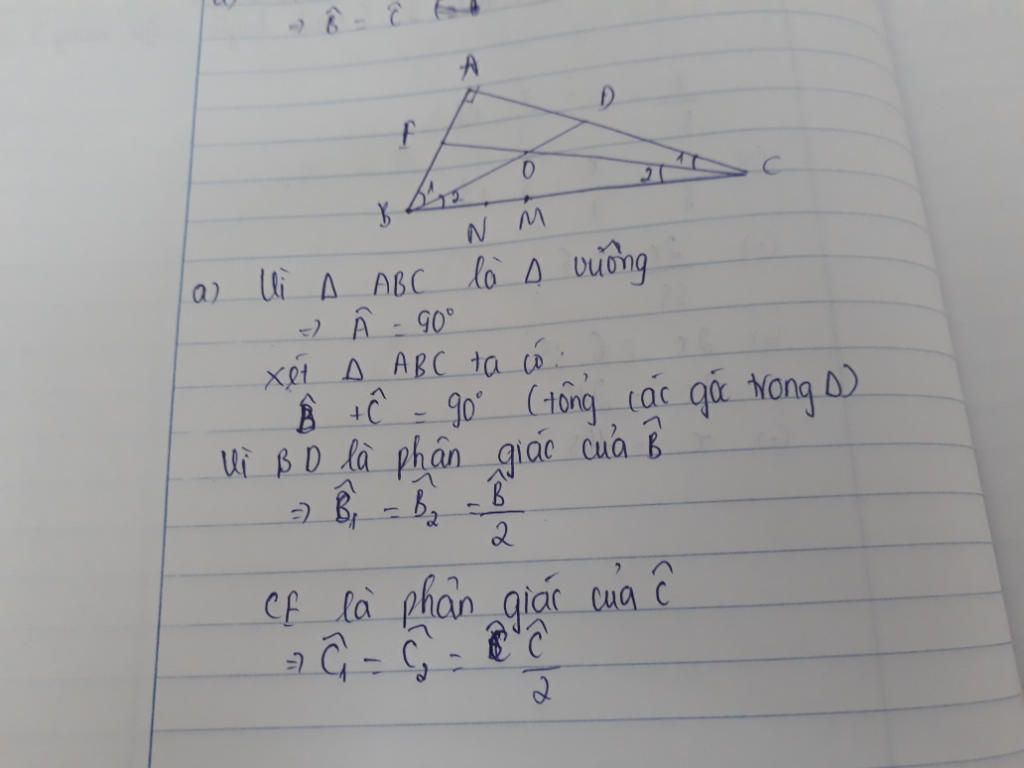 ⇒ B̂ = Ĉ
A
D
F
O
1
2
1
2
C
B
N
M
a) Vì Δ ABC là Δ vuông
⇒ Â = 90°
Xét Δ ABC ta có:
B̂ + Ĉ = 90° (tổng các góc trong Δ)
Vì BD là phân giác của B̂
⇒ B̂₁ = B̂₂ = B̂/2
CF là phân giác của Ĉ
⇒ Ĉ₁ = Ĉ₂ = Ĉ/2